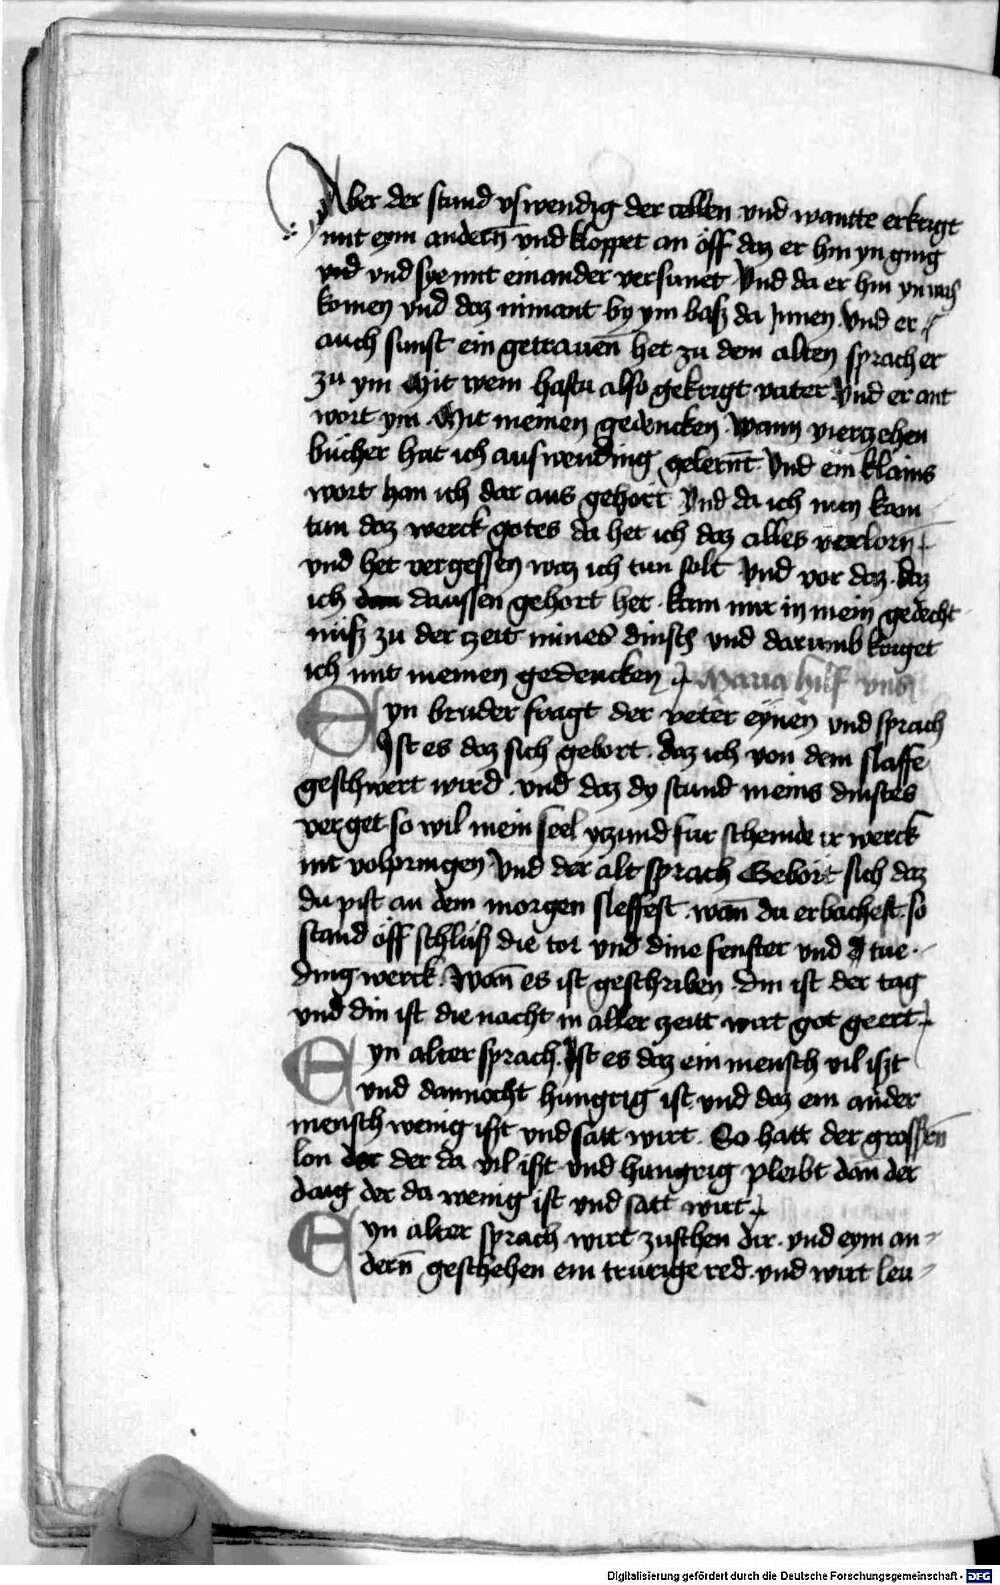 Aber der stund vswendig der cellen vnd wantte er krigt
mit eym andern̄ vnd kloppet an öff daz er hin yn ging
vnd vnd sye mit einander versunet Vnd da er hin yn was
komen vnd daz nimant by ym basz da Jnnen Vnd er
auch sunst ein getrauen̄ het zu dem alten sprach er
zu ym Mit wem hastu also gekrigt vater Vnd er ant
wort ym Mit meinen gedencken Wann vierzehen
bücher hat ich auswending gelernt Vnd ein klains
wort han ich dar aus gehort Vnd da ich nun kam
tun daz werck gotes da het ich daz alles verlorn
vnd het vergessen waz ich tun solt Vnd vor daz daz
ich dan daussen gehort het kam mir in mein gedecht
nüsz zu der zeit mines dinsts vnd darumb kriget
ich mit meinen gedencken Maria hilf vnd
Eyn bruder fragt der veter eynen vnd sprach
Jst es daz sich gebort daz ich von dem slaffe
geschwert wird vnd daz dy stund meins dinstes
verget so wil mein seel ytzund fur scheme ir werck
nit volpringen Vnd der alt sprach Gebört sich daz
du pist an dem morgen sleffest wan̄ du erbachest so
stand öff schlüsz die tor vnd dine fenster vnd tue
ding werck Wan̄ es ist geschriben din ist der tag
vnd din ist die nacht in aller zeitt wirt got geert
Eyn alter sprach Jst es daz ein mensch vil iszt
vnd dannocht hungrig ist vnd daz ein ander
mensch wenig iszt vnd satt wirt So hatt der grossen̄
lon der der da vil iszt vnd hungrig pleibt dan der
der da wenig ist vnd satt wirt
Eyn alter sprach wirt zuschen dir vnd eym an
dern̄ geschehen ein trurige red vnd wirt leu
Digitalisierung gefördert durch die Deutsche Forschungsgemeinschaft - DFG